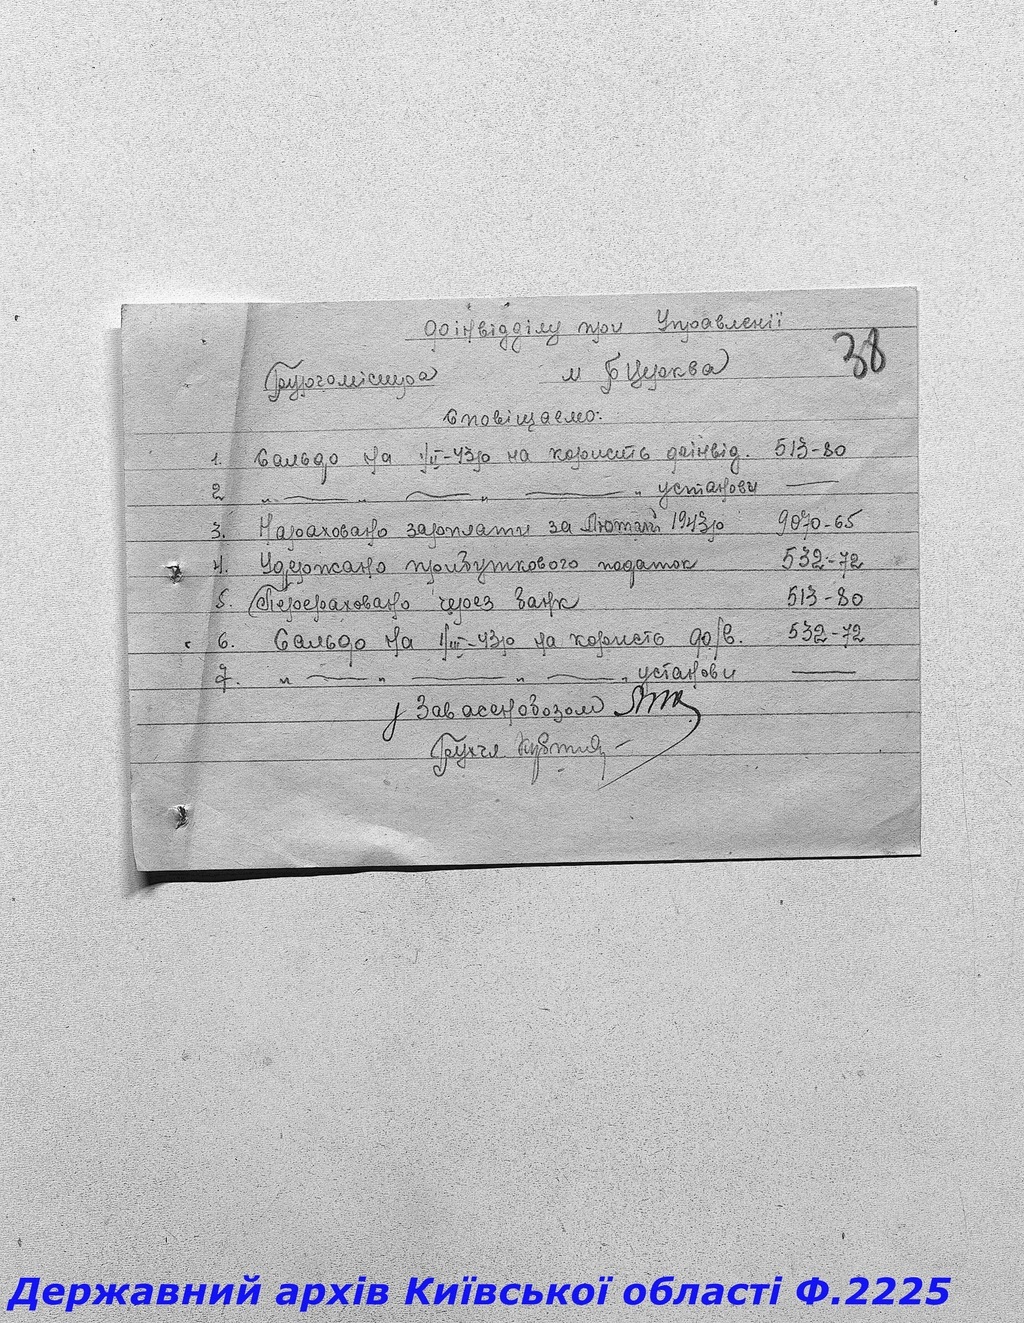 Фінвідділу при Управлєнії
38
Бургомістра м Б Церква
Сповіщаємо:
1. Сальдо на 1/II-43р на користь фінвід. 513-80
2 " — " — " — " установи —
3. Нараховано зарплати за Лютий 1943р 9070-65
4. Удержано прибуткового податок 532-72
5. Перераховано через банк 513-80
6. Сальдо на 1/III-43р на користь ф/в. 532-72
7. " — " — " — " установи —
Зав асенобозом
Бухгл
Державний архів Київської області Ф.2225